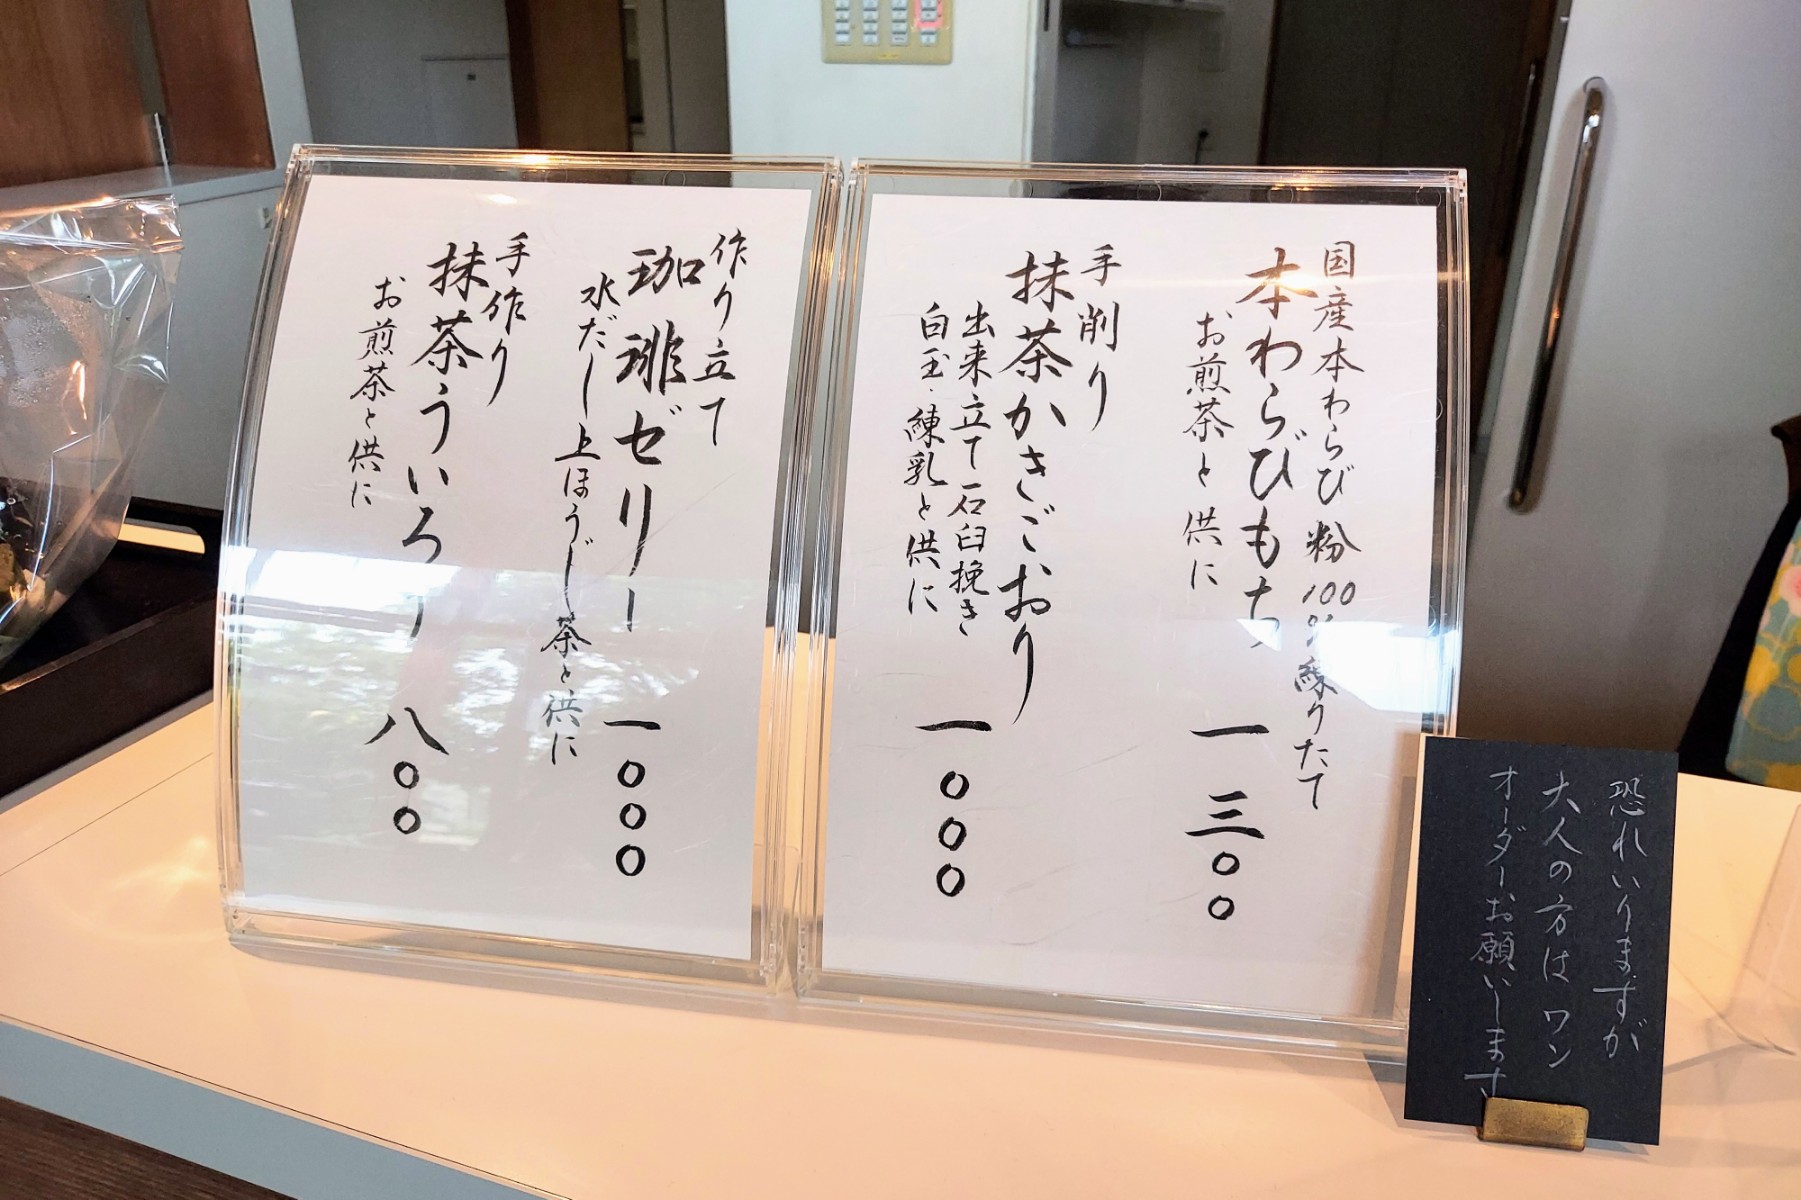 国産本わらび粉100%練りたて
本わらびもち
お煎茶と供に
一三〇〇
手削り
抹茶かきごおり
出来立て石臼挽き
白玉・練乳と供に
一〇〇〇
作り立て
珈琲ゼリー
水だし上ほうじ茶と供に
一〇〇〇
手作り
抹茶ういろー
お煎茶と供に
八〇〇
恐れいりますが
大人の方はワン
オーダーお願いします